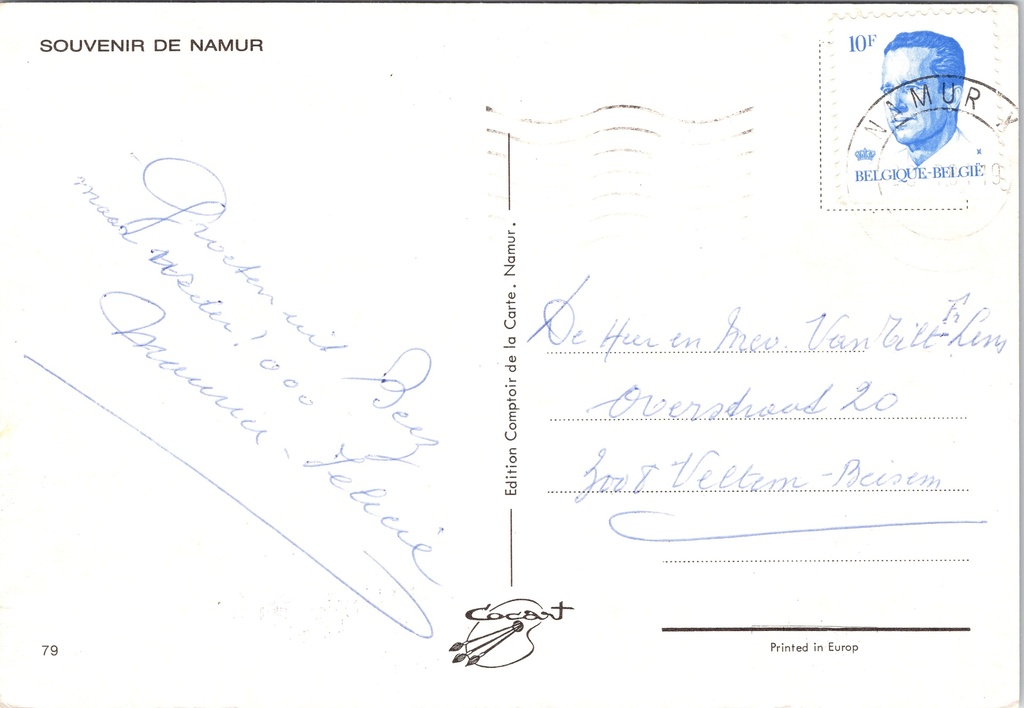 SOUVENIR DE NAMUR
10F
NAMUR
BELGIQUE-BELGIË
Groeten uit Beez
maar weder! ooo
Maurice - Felicie
Edition Comptoir de la Carte. Namur.
De Heer en Mev. Van Tilt - Lens
Overstraat 20
Veltem - Beisem
Cocart
79
Printed in Europ